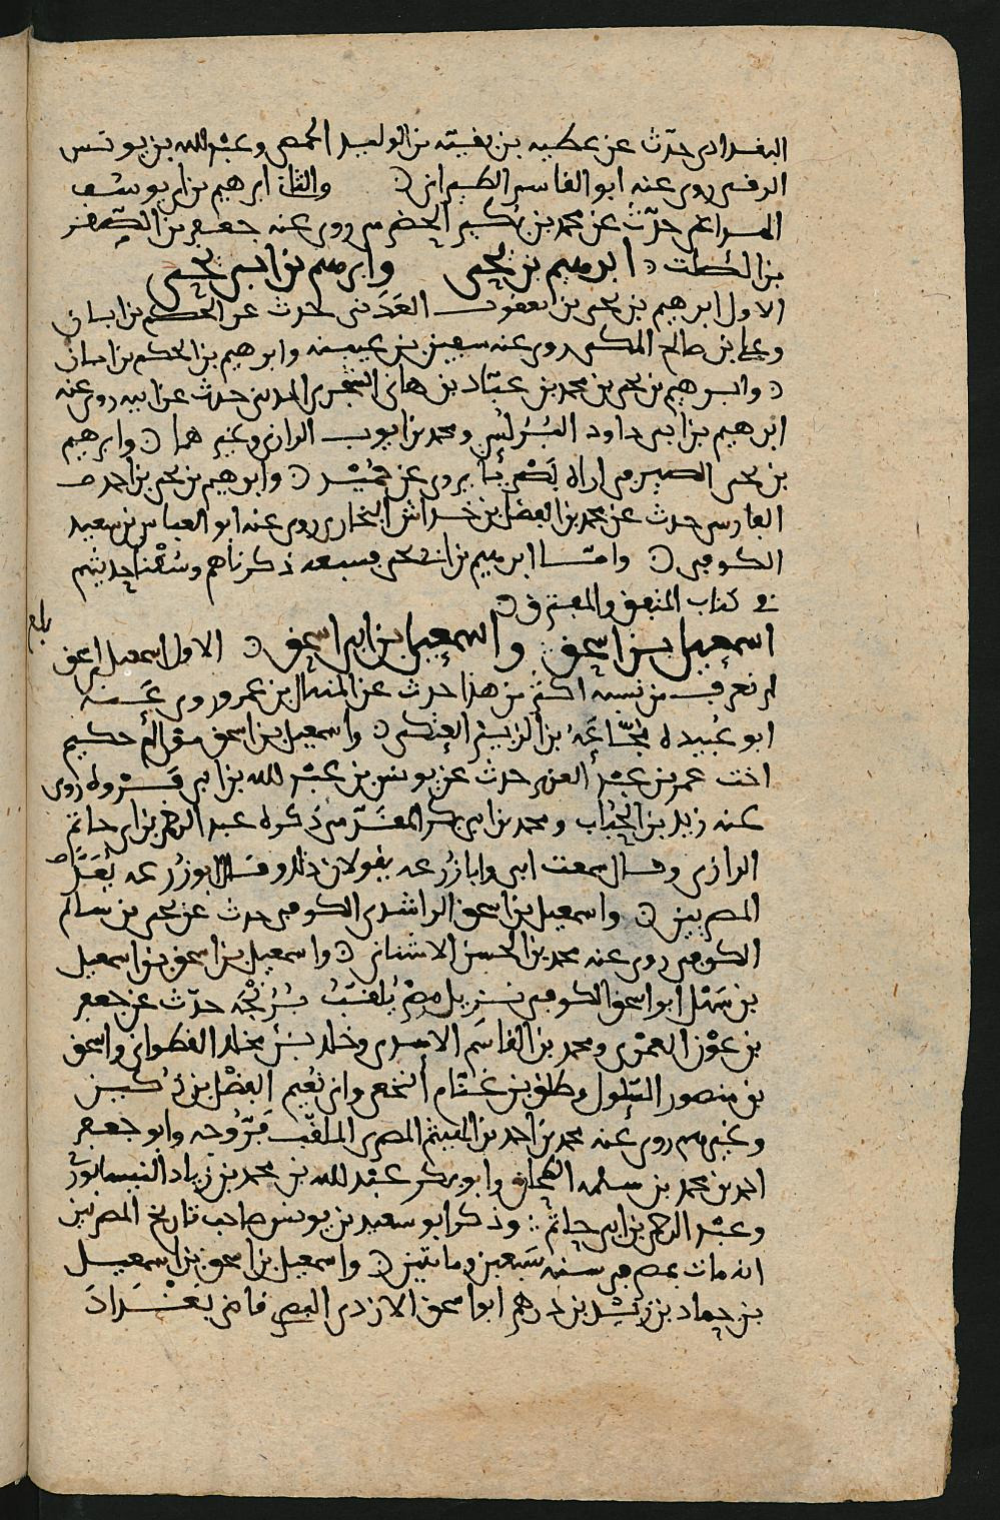 البغدادي حدث عن عطيه بن بقيه بن الوليد الحمصي وعبد الله بن يونس
الرقي روى عنه ابو القاسم الطبراني والثاني ابرهيم بن ابي يوسف
المراغي حدّث عن محمد بن بكير الحضرمي روى عنه جعفر بن الصقر
بن الصلت ابرهيم بن يحيى وابرهيم بن ابي يحيى
الاول ابرهيم بن يحيى بن يعقوب العَدَني حدث عن الحكم بن ابان
وعلي بن صالح المكي روى عنه سفين بن عيينه وابرهيم بن الحكم بن ابان
وابرهيم بن يحيى بن محمد بن عبّاد بن هاني الشجري المديني حدث عن ابيه روى عنه
ابرهيم بن ابي داود البُرُلُّسي ومحمد بن ايوب الرازي وغيرهما وابرهيم
بن يحيى الصيرفي اراه بَصْريًا يروي عن حُمَيْد وابرهيم بن يحيى بن احمد
الفارسي حدث عن محمد بن الفضل بن خداش البخاري روى عنه ابو العباس بن سعيد
الكوفي واما ابرهيم بن ابي يحيى فسبعه ذكرناهم وسُقْنا حديثهم
في كتاب المتفق والمفترق
اسمعيل بن اسحق واسمعيل بن ابي اسحق الاول اسمعيل بن اسحق
لم نعرف من نسبه اكثر من هذا حدث عن المنهال بن عمرو روى عنه
ابو عُبيده مُجّاعَهُ بن الزبير العتكي واسمعيل بن اسحق مولى ام حكيم
اخت عمر بن عبد العزيز حدث عن يونس بن عبد الله بن ابي فَرْوه روى
عنه زيد بن الحُبَاب ومحمد بن ابي بكر المقدّمي ذكره عبد الرحمن بن ابي حاتم
الرازي وقال سمعت ابي وابا زُرعه يقولان ذلك وقال ابو زُرعه يُعَدّ في
المصريين واسمعيل بن اسحق الراشدي الكوفي حدث عن يحيى بن سالم
الكوفي روى عنه محمد بن الحسين الاشناني واسمعيل بن اسحق بن اسمعيل
بن سَهْل ابو اسحق الكوفي نزيل مِصْر يُلقّبُ تُرُنْجَه حدّث عن جعفر
بن عَوْن العمري ومحمد بن القاسم الاسدي وخلد بن مخلد القطواني واسحق
بن منصور السّلولي وطلق بن غنّام النخعي وابي نُعيم الفضْل بن دُكين
وغيرهم روى عنه محمد بن احمد بن الهيثم المصري الملقب فَرُّوجه وابو جعفر
احمد بن محمد بن سلمه الطحاوي وابو بكر عبد الله بن محمد بن زياد النيسابوري
وعبد الرحمن بن ابي حاتم وذكر ابو سعيد بن يونس صاحب تاريخ المصريين
انه مات بمصر في سنه سَبعين ومائتين واسمعيل بن اسحق بن اسمعيل
بن حماد بن زَيْد بن درهم ابو اسحق الازدي البصري قاضي بَغْدادَ